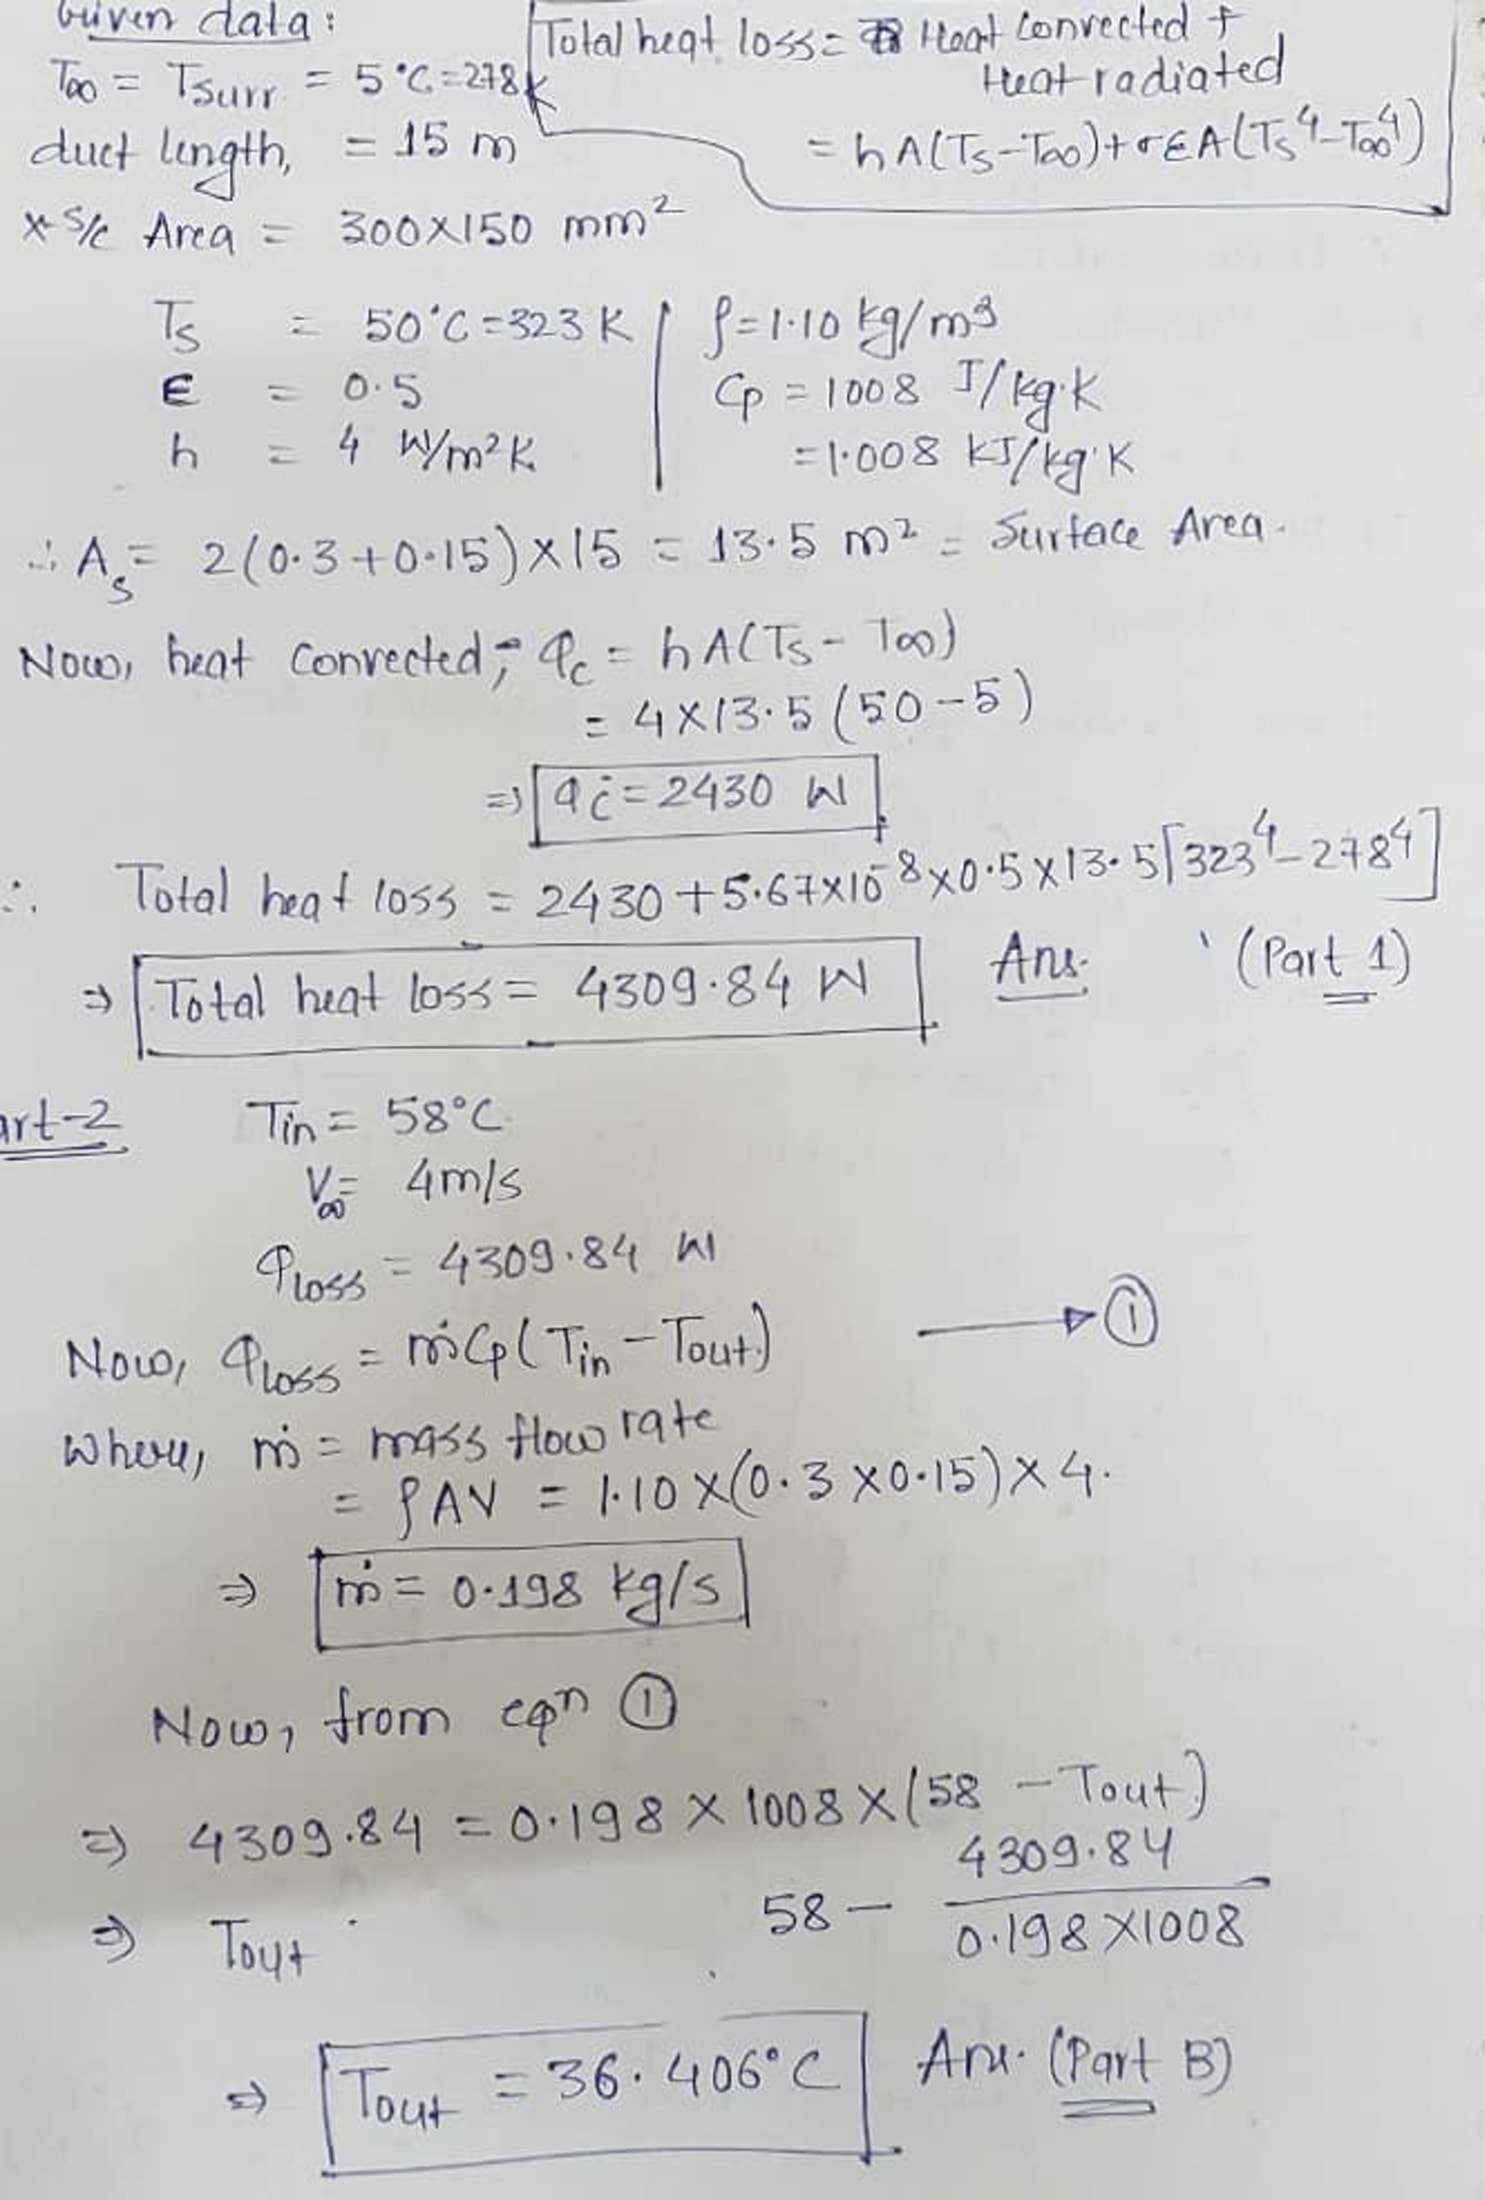 Given data:
T∞ = Tsurr = 5°C = 278K
Total heat loss = Heat convected +
Heat radiated
= hA(Ts-T∞)+σεA(Ts⁴-T∞⁴)
duct length, = 15 m
x s/c Area = 300×150 mm²
Ts = 50°C = 323 K
ε = 0.5
h = 4 W/m²K
ρ = 1.10 kg/m³
Cp = 1008 J/kg·K
= 1.008 kJ/kg·K
∴ As = 2(0.3+0.15)×15 = 13.5 m² = Surface Area.
Now, heat convected; qc = hA(Ts - T∞)
= 4×13.5(50-5)
⇒ qc = 2430 W
∴ Total heat loss = 2430+5.67×10⁻⁸×0.5×13.5[323⁴-278⁴]
⇒ Total heat loss = 4309.84 W Ans. (Part 1)
art-2 Tin = 58°C
V∞ = 4m/s
qloss = 4309.84 W
Now, qloss = ṁCp(Tin - Tout) → ①
Where, ṁ = mass flow rate
= ρAV = 1.10×(0.3×0.15)×4.
⇒ ṁ = 0.198 kg/s
Now, from eqn ①
⇒ 4309.84 = 0.198×1008×(58 - Tout)
⇒ Tout 58 - 4309.84
0.198×1008
⇒ Tout = 36.406°C Ans. (Part B)